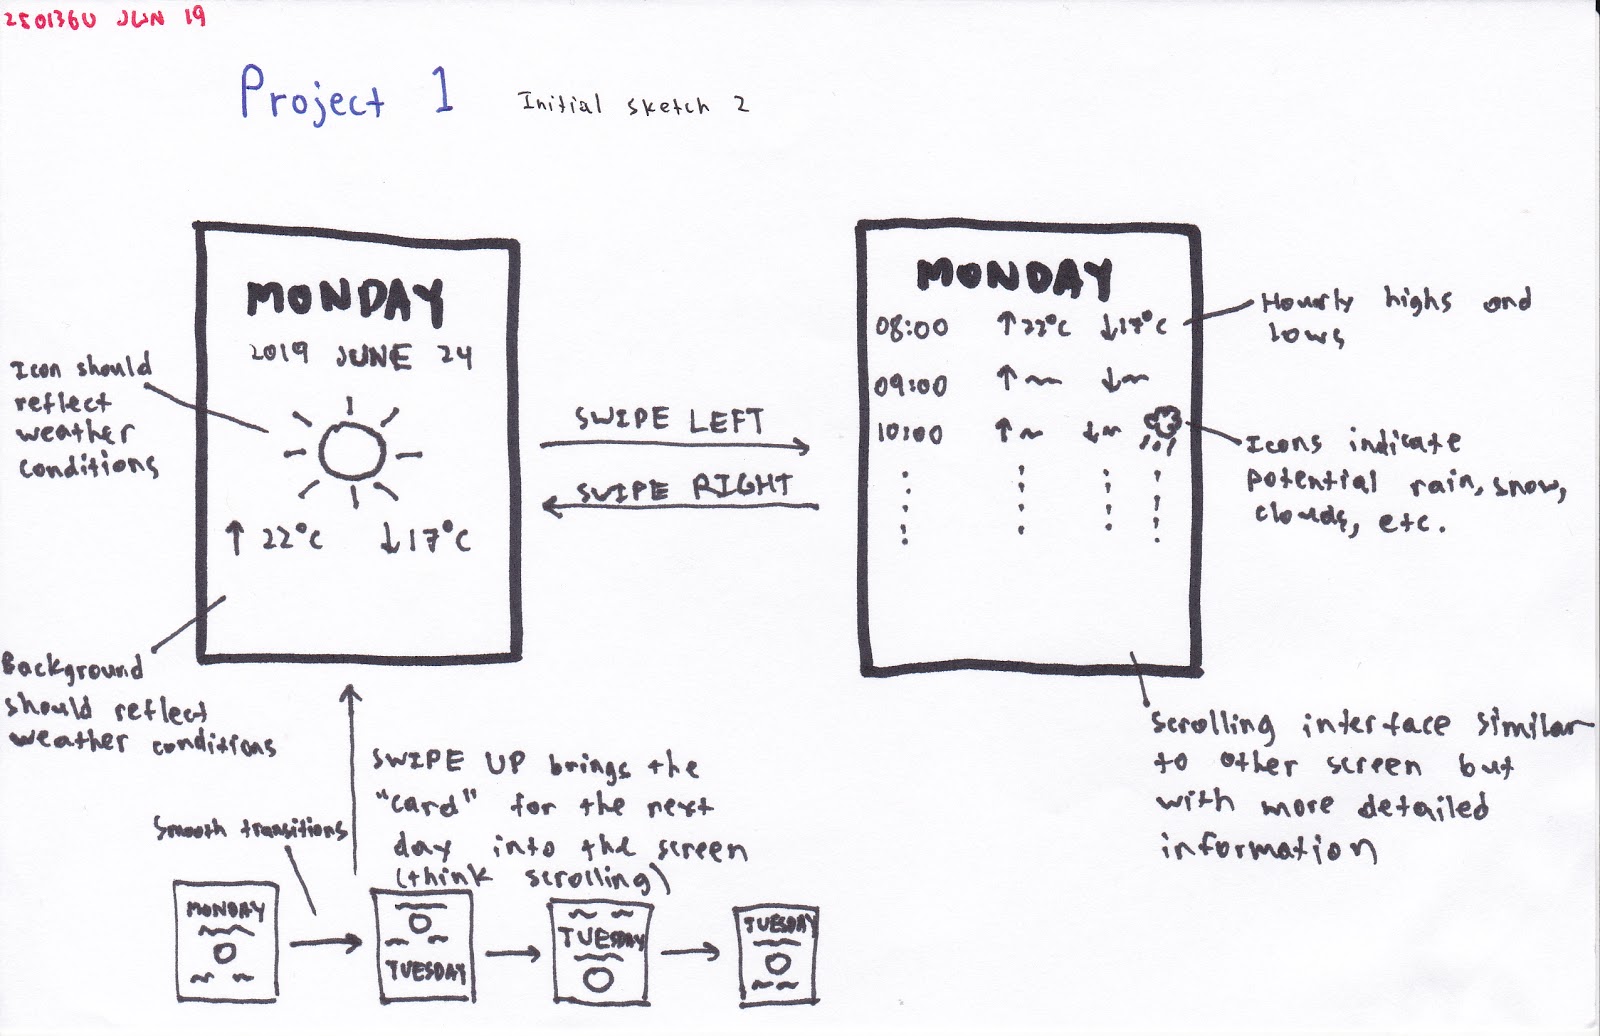 250136U JUN 19
Project 1 Initial sketch 2
MONDAY
2019 JUNE 24
↑ 22°C ↓17°C
Icon should
reflect
weather
conditions
Background
should reflect
weather conditions
SWIPE LEFT
SWIPE RIGHT
MONDAY
08:00 ↑22°C ↓17°C
09:00 ↑ ↓
10:00 ↑ ↓
Hourly highs and
lows
Icons indicate
potential rain, snow,
clouds, etc.
Scrolling interface similar
to other screen but
with more detailed
information
SWIPE UP brings the
"card" for the next
day into the screen
(think scrolling)
Smooth transitions
MONDAY
TUESDAY
TUESDAY
TUESDAY